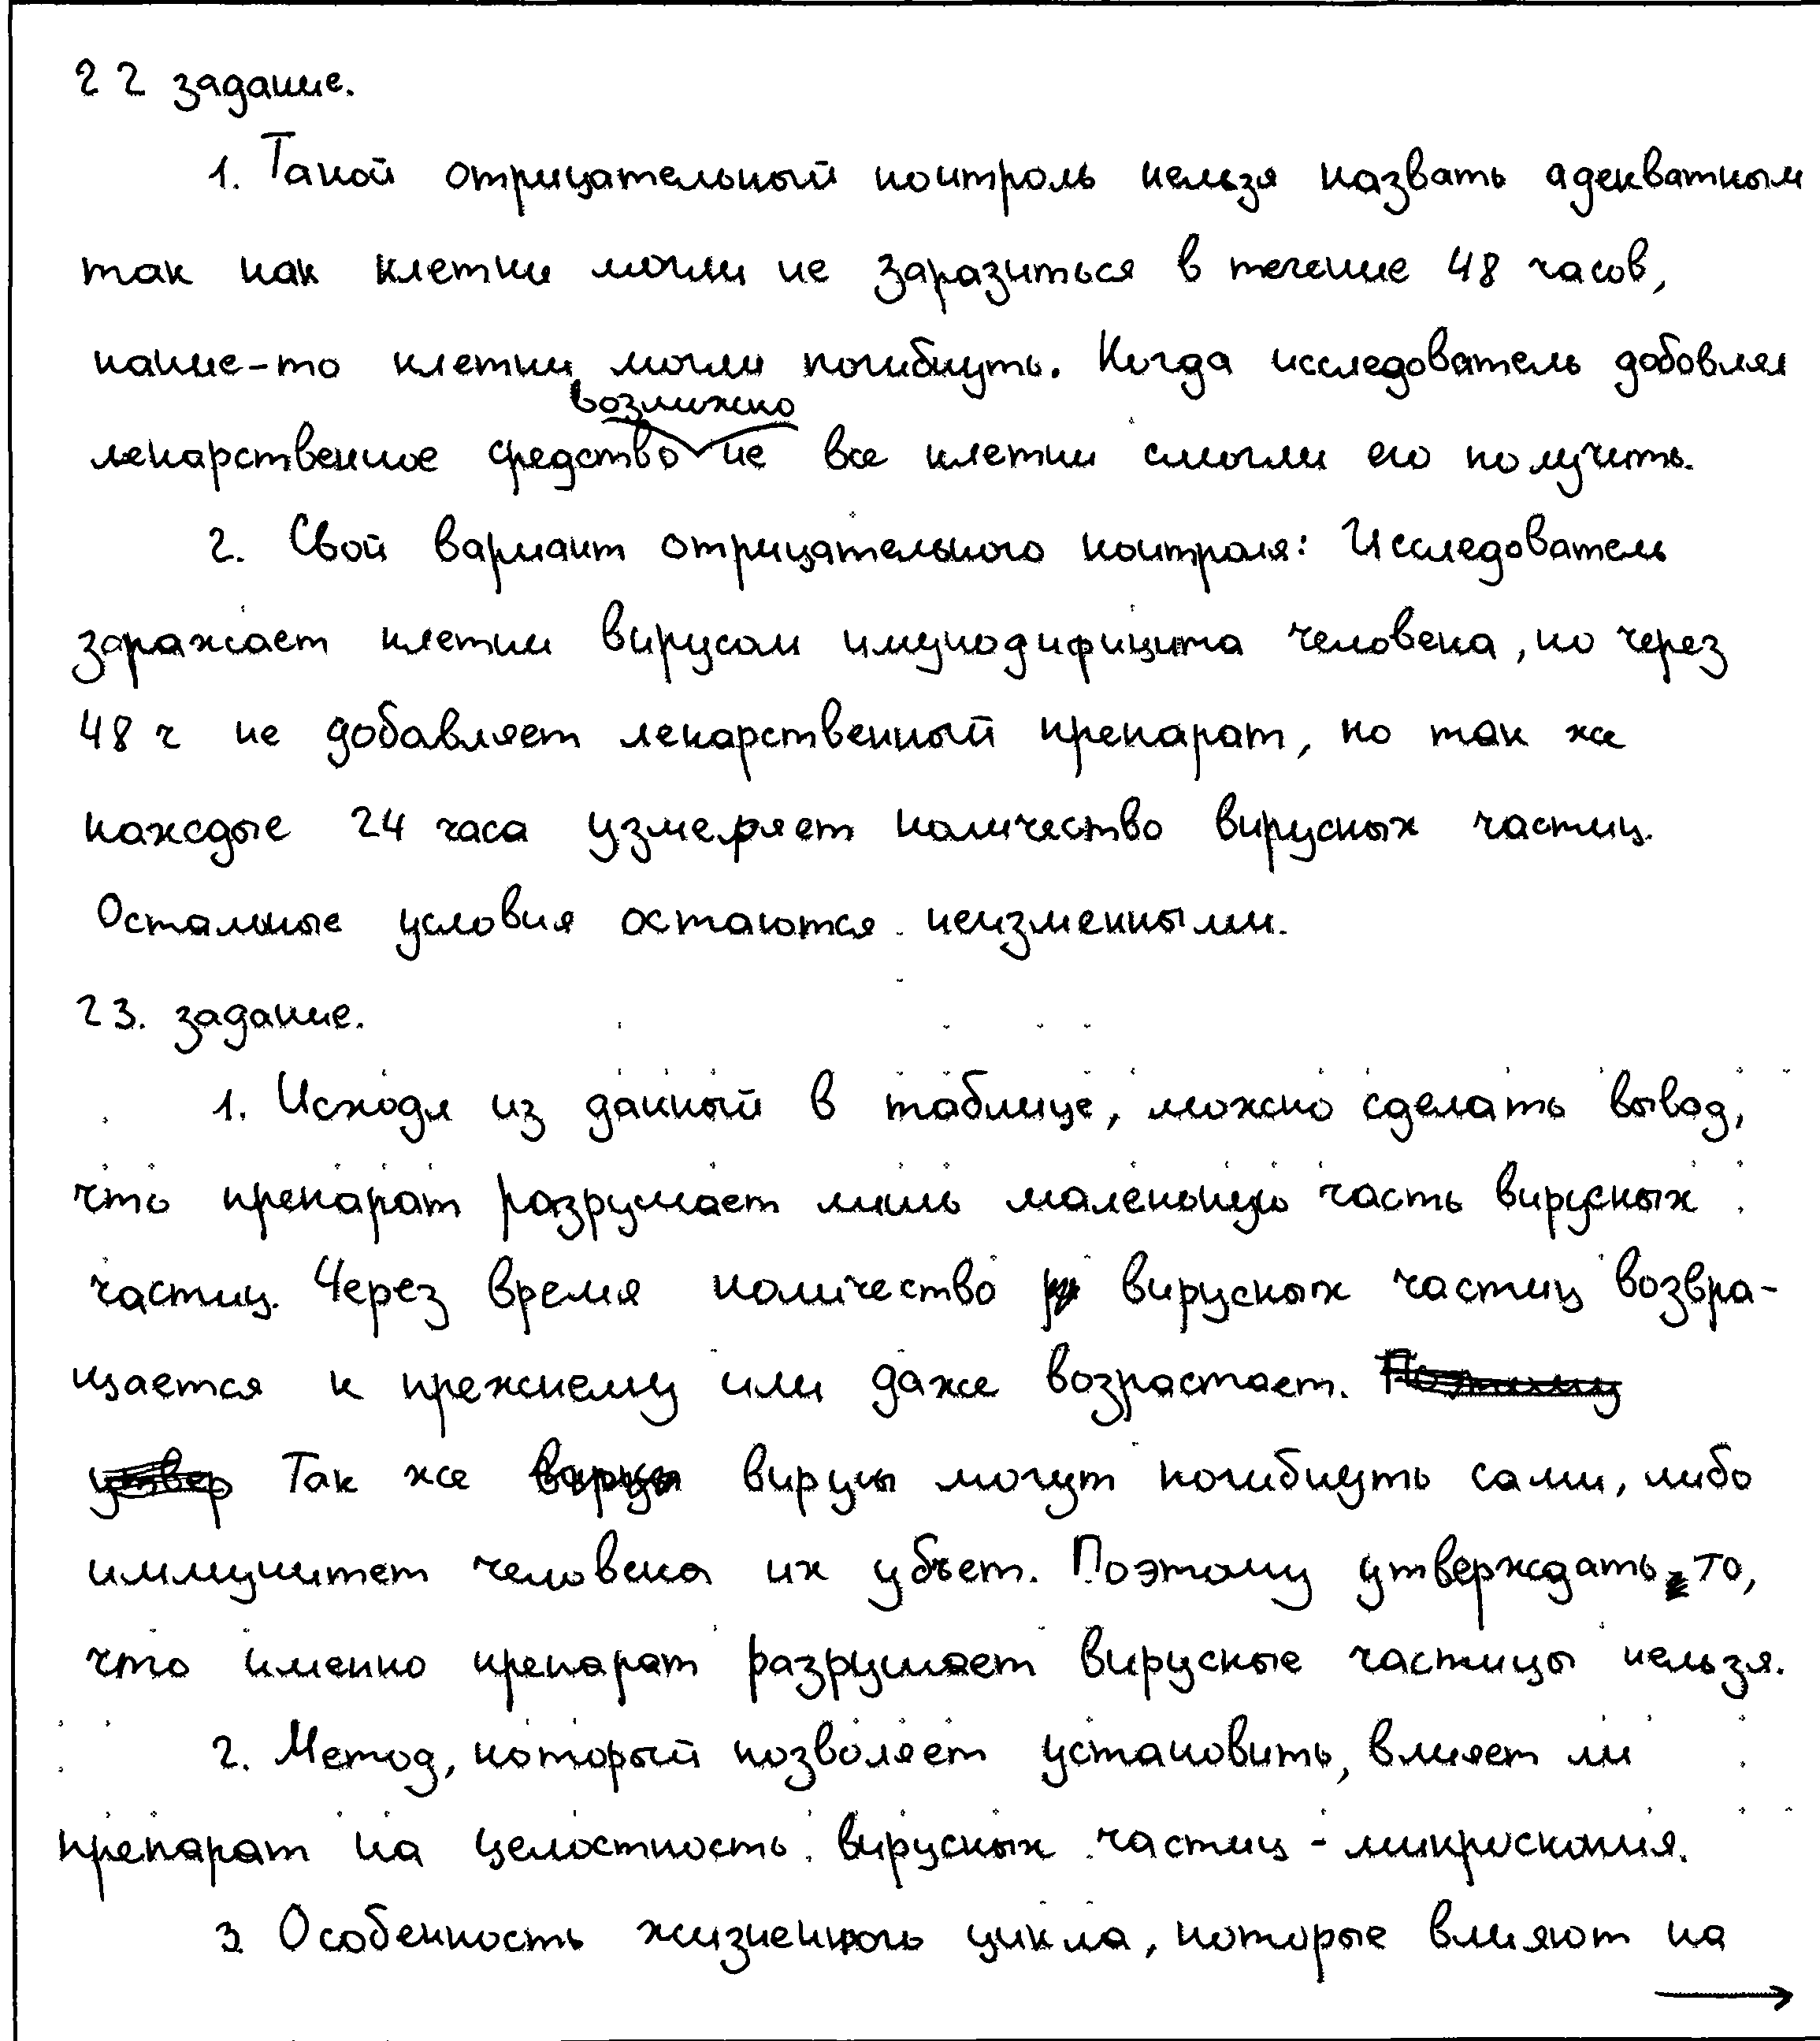 22 задание.
1. Такой отрицательный контроль нельзя назвать адекватным
так как клетки могли не заразиться в течение 48 часов,
какие-то клетки могли погибнуть. Когда исследователь добовлял
возможно
лекарственное средство не все клетки смогли его получить.
2. Свой вариант отрицательного контроля: Исследователь
заражает клетки вирусом имунодифицита человека, но через
48 ч не добавляет лекарственный препарат, но так же
каждые 24 часа измеряет количество вирусных частиц.
Остальные условия остаются неизменными.
23. задание.
1. Исходя из данный в таблице, можно сделать вывод,
что препарат разрушает лишь маленькую часть вирусных
частиц. Через время количество вирусных частиц возвра-
щается к прежнему или даже возрастает.
Так же вирусы могут погибнуть сами, либо
иммунитет человека их убъет. Поэтому утверждать то,
что именно препарат разрушает вирусные частицы нельзя.
2. Метод, который позволяет установить, влияет ли
препарат на целостность вирусных частиц - микроскопия.
3. Особенность жизненного цикла, которые влияют на
→